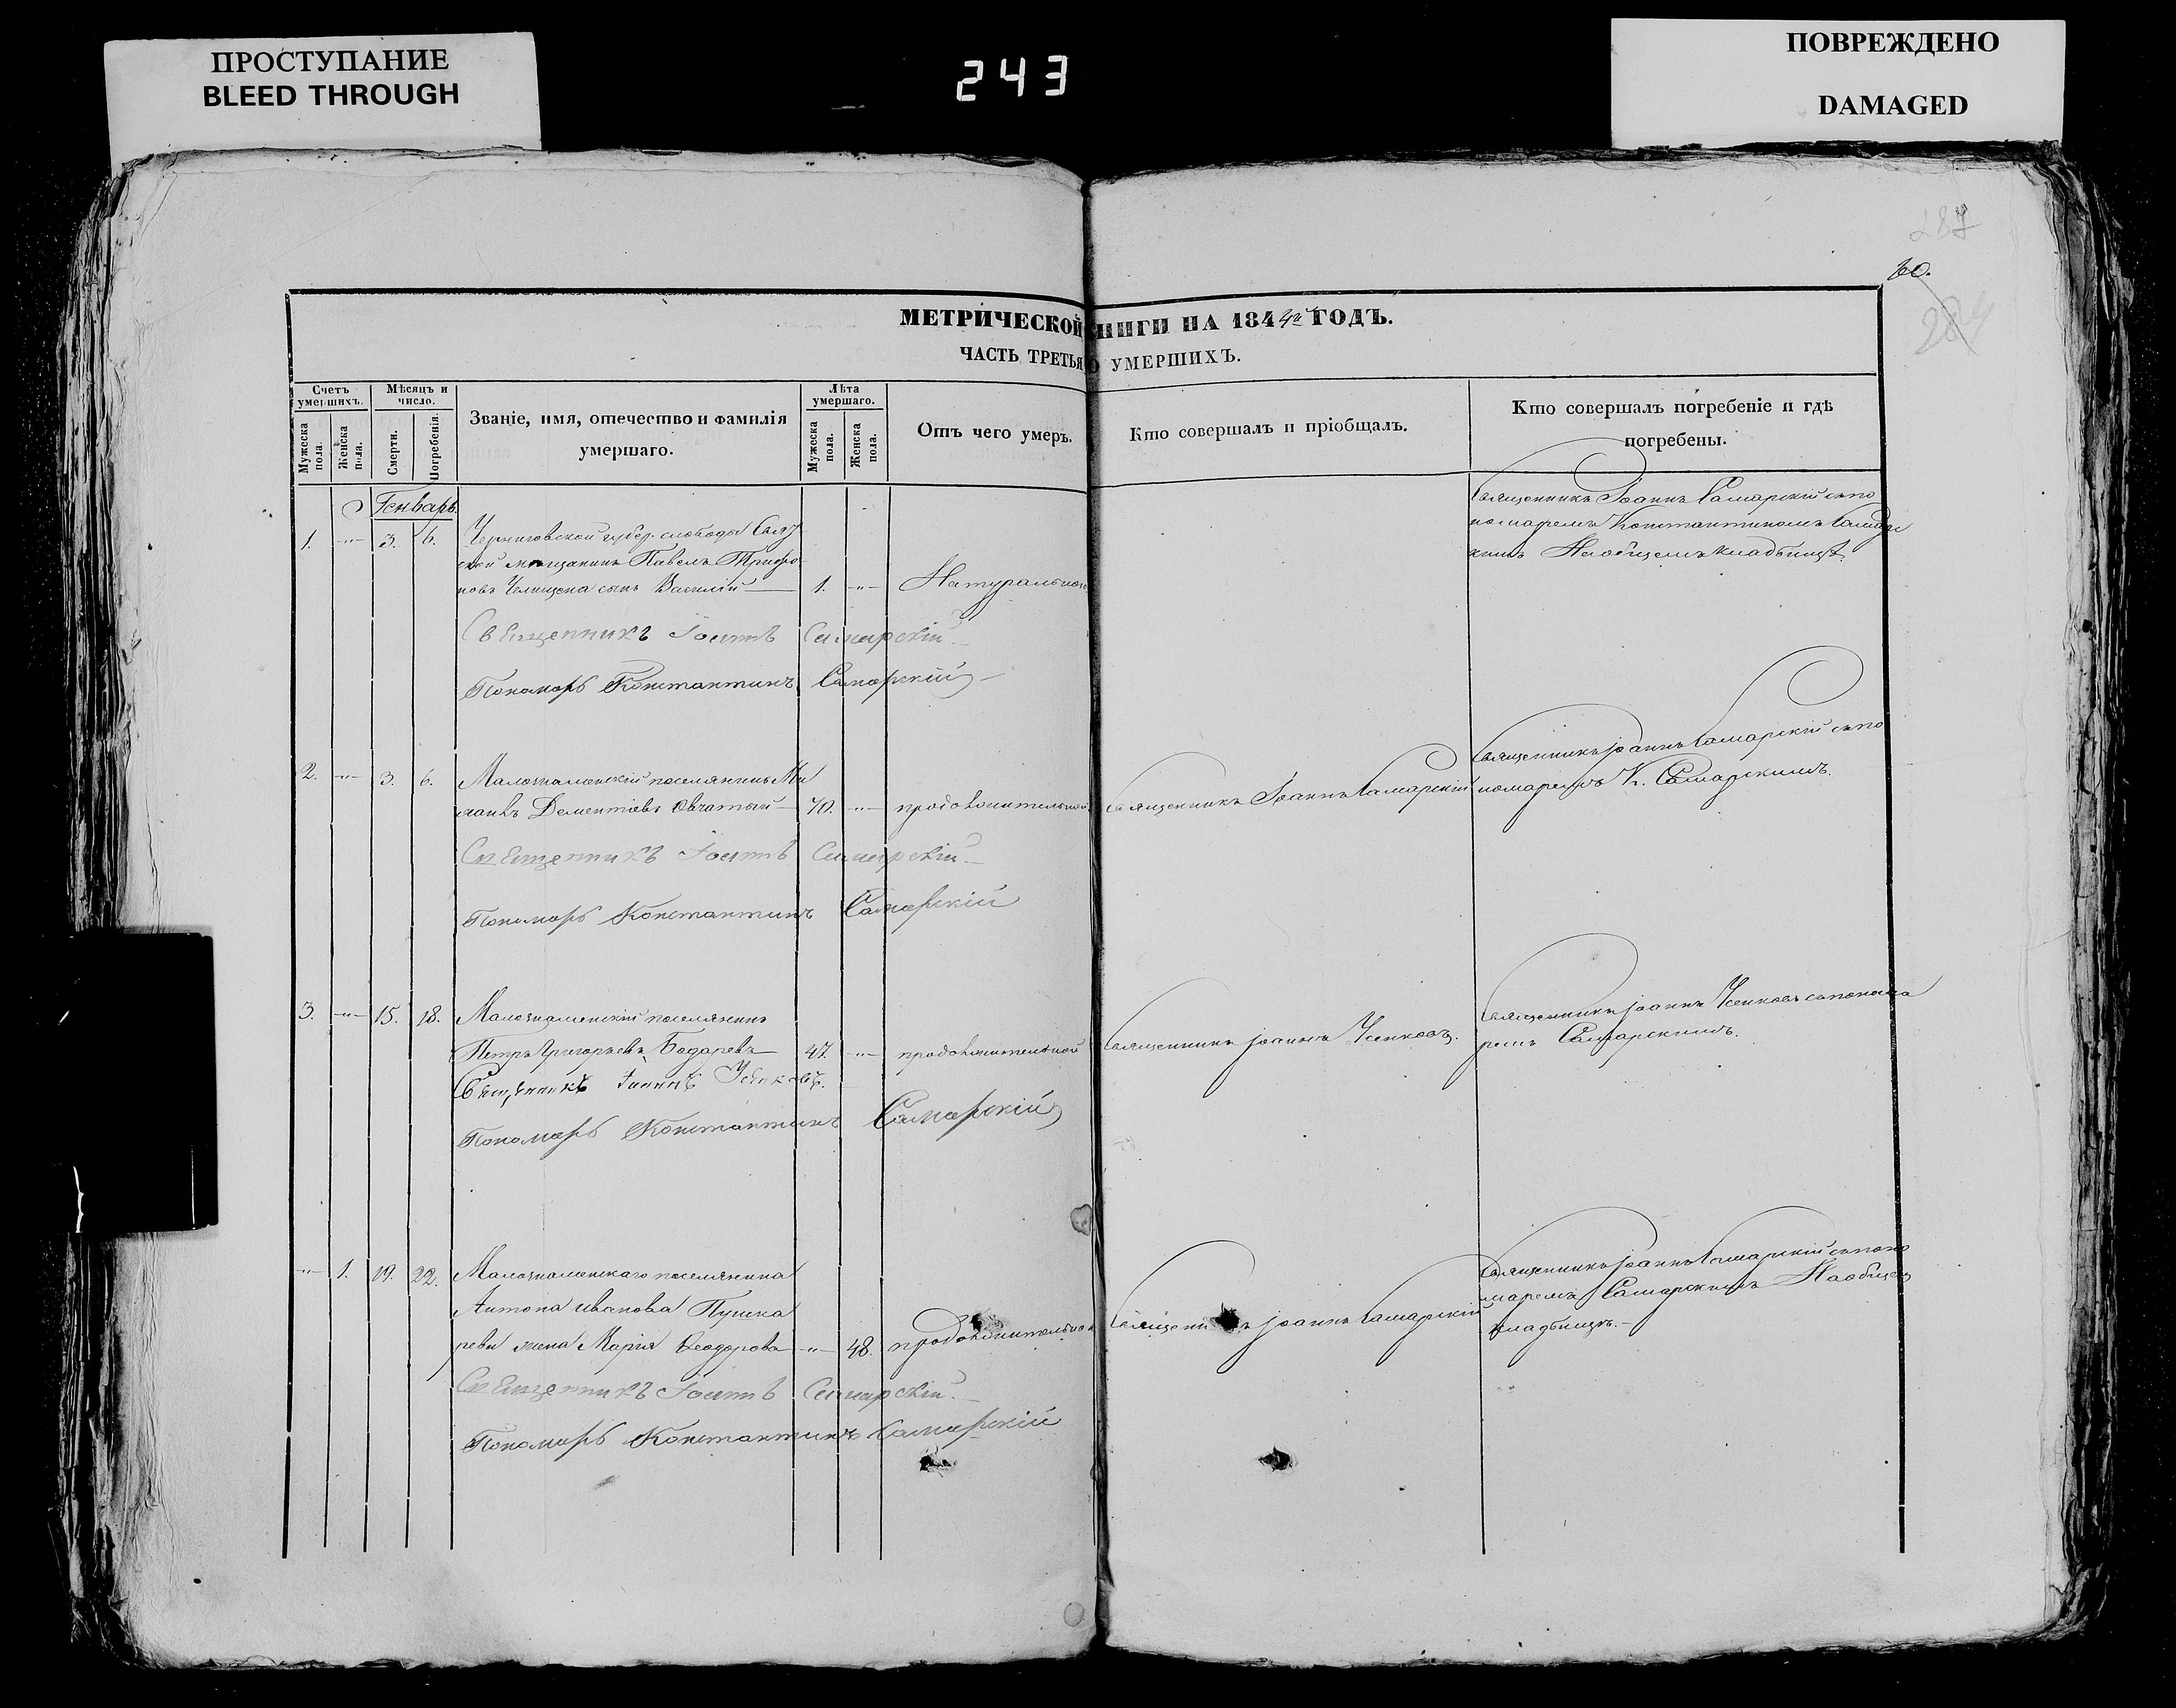 ПРОСТУПАНИЕ
BLEED THROUGH
243
ПОВРЕЖДЕНО
DAMAGED
60.
МЕТРИЧЕСКОЙ КНИГИ НА 1844й ГОДЪ.
ЧАСТЬ ТРЕТЬЯ О УМЕРШИХЪ.
Счетъ умершихъ.
Мужеска пола.
Женска пола.
Мѣсяцъ и число.
Смерти.
Погребенія.
Званіе, имя, отечество и фамилія
умершаго.
Лѣта умершаго.
Мужеска пола.
Женска пола.
Отъ чего умеръ.
Кто совершалъ и пріобщалъ.
Кто совершалъ погребеніе и гдѣ
погребены.
Генварь.
1. -"- 3. 6. Черниговской губер. слободы
мѣщанинъ Павелъ Трифо
новъ сынъ Василій 1. -"- Натуральной
Священникъ Іоаннъ Самарскій съ по
номаремъ Константиномъ Самарс
кимъ На общемъ кладбищѣ
Священникъ Іоаннъ Самарскій
Пономарь Константинъ Самарскій
2. -"- 3. 6. Малознаменскій поселянинъ
Дементіевъ 70. -"- продолжительной Священникъ Іоаннъ Самарскій
Священникъ Іоаннъ Самарскій съ по
номаремъ К. Самарскимъ.
Священникъ Іоаннъ Самарскій
Пономарь Константинъ Самарскій
3. -"- 15. 18. Малознаменскій поселянинъ
Петръ Григорьевъ Бодаревъ 47. -"- продолжительной Священникъ Іоаннъ Усенковъ.
Священникъ Іоаннъ Усенковъ съ понома
ремъ Самарскимъ.
Священникъ Іоаннъ Усенковъ.
Пономарь Константинъ Самарскій
-"- 1. 19. 22. Малознаменскаго поселянина
Антона Иванова Пушка
рева жена Марія Ѳеодорова -"- 48. продолжительной Священникъ Іоаннъ Самарскій
Священникъ Іоаннъ Самарскій съ поно
маремъ Самарскимъ На общем
кладбищѣ.
Священникъ Іоаннъ Самарскій
Пономарь Константинъ Самарскій